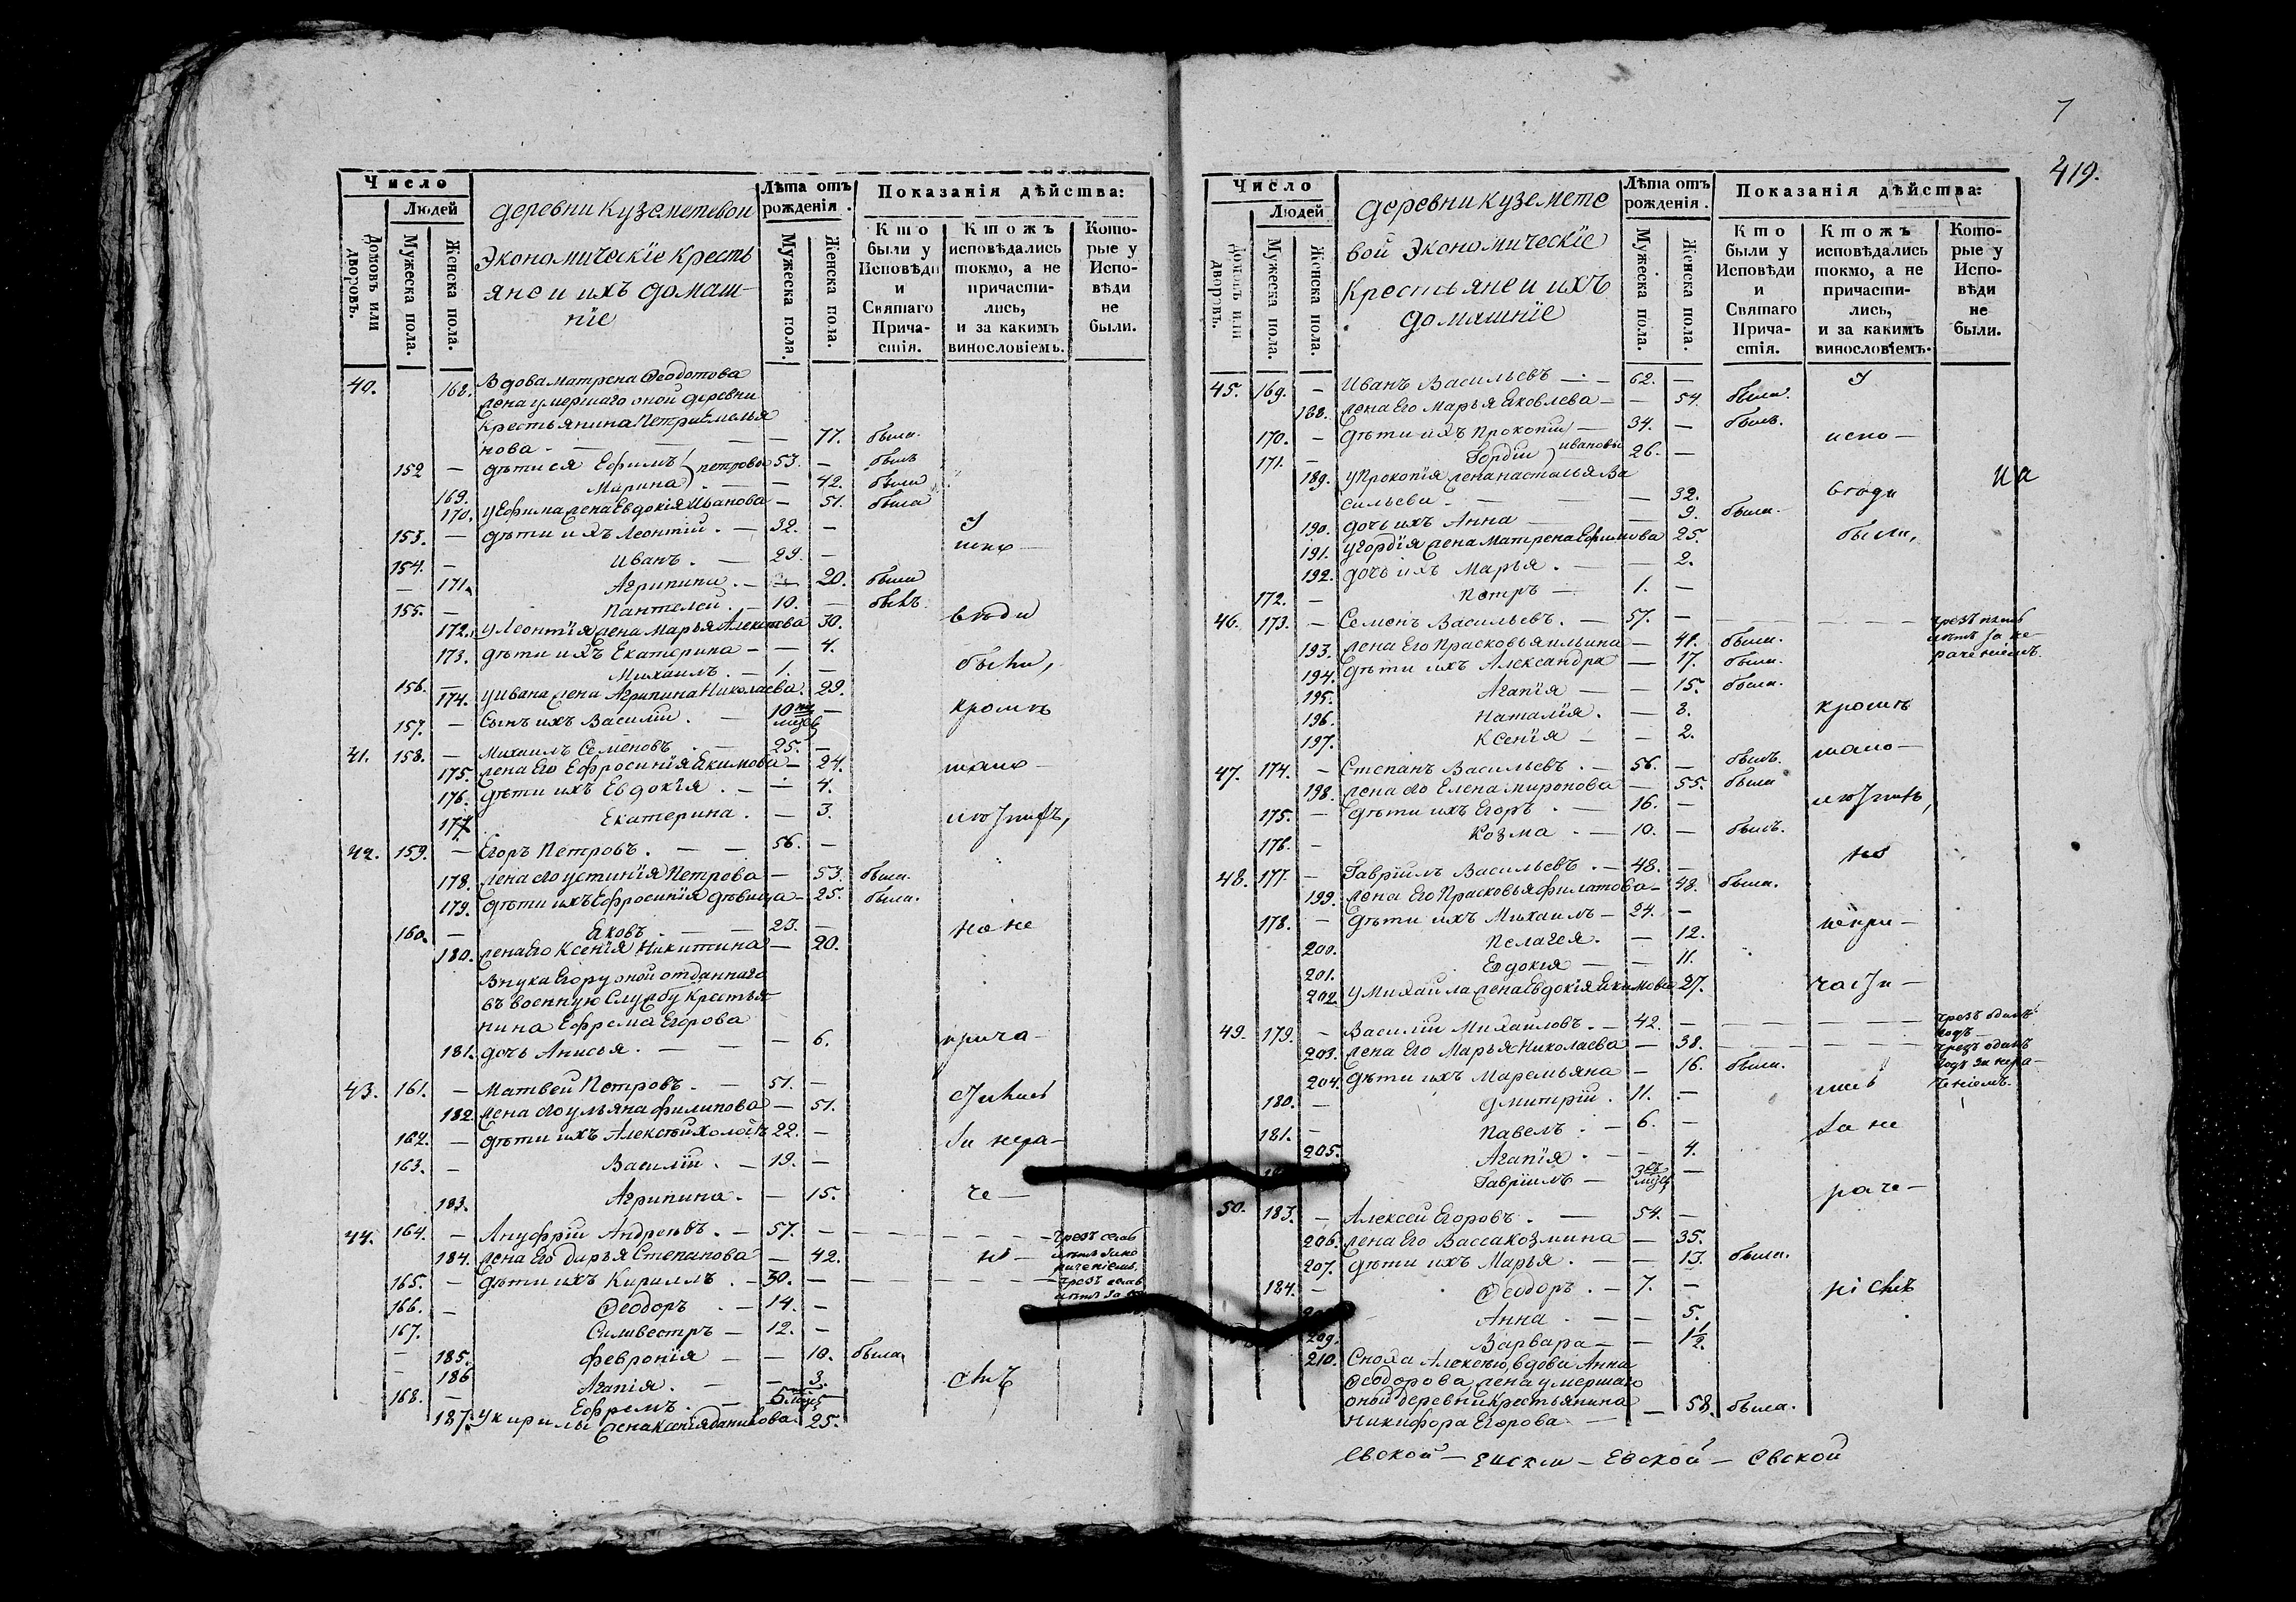 7
419.
Число
Людей
Домовъ или дворовъ.
Мужеска пола.
Женска пола.
деревни Куземетевой
Экономическіе Кресть
яне и ихъ домаш-
ніе
Лѣта отъ рожденія.
Мужеска пола.
Женска пола.
Показанія дѣйства:
Кто были у Исповѣди и Святаго Прича-стія.
Ктожъ исповѣдались токмо, а не причасти-лись, и за какимъ винословіемъ.
Кото-рые у Испо-вѣди не были.
40. 168. Вдова Матрена Феодотова
жена умершаго оной деревни
крестьянина Петра Емелья
нова - 77. была.
152 - дѣти ея Ефимъ } петровы 53. - былъ
169. Марина - 42. была
170. у Ефима жена Евдокія Иванова - 51. была
153. - дѣти ихъ Леонтій. - 32. -
154. - Иванъ. - 29. -
- 171. Агрипина. - 20. была
155. - Пантелей. - 10. - былъ.
172. у Леонтія жена Марья 30.
173. дѣти ихъ Екатерина - - 4.
156. - Михаилъ. - 1. -
174. у Ивана жена Агрипина Николаева. 29.
157. - Сынъ ихъ Василій. - 10 -
кромѣ
41. 158. - Михаилъ Семеновъ. - 25. -
175. жена Его Ефросинія Екимова - 24.
176. дѣти ихъ Евдокія. - - 4.
177. Екатерина. - 3.
42. 159. - Егоръ Петровъ. - - 56. -
178. жена его Устинія Петрова - 53. была.
179. дѣти ихъ Ефросинія дѣвица - 25. была.
160. - Яковъ. - - 23. - но не
180. жена Его Ксенія Никитина - 20.
Внука Егору оной отданнаго
въ военную Службу Крестья
нина Ефрема Егорова
181. дочь Анисья. - - - 6. прича-
43. 161. - Матвей Петровъ. - 51. -
182. жена его Ульяна Филипова - 51.
162. - дѣти ихъ Алексѣй холостъ 22. - за нера-
163. - Василій. - 19. -
183. Агрипина. - 15. че-
44. 164. - Ануфрій Андреевъ. - 57. -
184. жена Его Дарья Степанова - 42. ні-
165. - дѣти ихъ Кириллъ. - 30. -
166. - Феодоръ. - 14. -
167. - Сильвестръ - 12. -
185. Февронія - - 10. была.
186 Агапія. - - 3.
168. - Ефремъ. - 5
187. у Кирилы жена Ксенія Данилова 25.
Число
Людей
Домовъ или дворовъ.
Мужеска пола.
Женска пола.
деревни Куземете
вой Экономическіе
Крестьяне и ихъ
домашніе
Лѣта отъ рожденія.
Мужеска пола.
Женска пола.
Показанія дѣйства:
Кто были у Исповѣди и Святаго Прича-стія.
Ктожъ исповѣдались токмо, а не причасти-лись, и за какимъ винословіемъ.
Кото-рые у Испо-вѣди не были.
45. 169. - Иванъ Васильевъ - - 62. -
188. жена Его Марья Яковлева - - 54. была.
170. - дѣти ихъ Прокопій - 34. - былъ.
171. - Гордій } ивановы 26. - испо-
189. у Прокопія жена Настасья Ва
сильева - - - 32.
190. дочь ихъ Анна - - 9. была.
191. у Гордія жена Матрена Ефимова 25. были,
192. дочь ихъ Марья. - - 2.
172. - Петръ - 1. -
46. 173. - Семенъ Васильевъ. - 57. -
193. жена Его Прасковья Ильина - 41. была.
194. дѣти ихъ Александра - 17. была.
195. Агапія - - 15. была.
196. Наталія. - 8. кромѣ
197. Ксенія - - 2.
47. 174. - Степанъ Васильевъ. - 56. - былъ.
198. жена его Елена Миронова - 55. была
175. - дѣти ихъ Егоръ. - 16. -
176. - Козма. - 10. - былъ.
48. 177. - Гавріилъ Васильевъ. - 48. - но
199. жена Его Прасковья Филатова - 48. была.
178. - дѣти ихъ Михаилъ - 24. -
200. Пелагея. - 12. непри-
201. Евдокія - - 11.
202. у Михаила жена Евдокія Екимова 27. части-
49. 179. - Василій Михаиловъ. - 42. -
203. жена Его Марья Николаева - 38.
204. дѣти ихъ Маремьяна - 16. была.
180. - Дмитрій. 11. -
181. - Павелъ. - 6. - за не
205. Агапія. - - 4.
Гавріилъ - 3 -
раче-
50. 183. - Алексей Егоровъ. - 54. -
206. жена Его Васса Козмина - 35.
207. дѣти ихъ Марья. - - 13. была.
184. - Феодоръ. - 7. - ніемъ
Анна. - - 5.
209. Варвара - - 1 1/2.
210. Сноха Алексѣю, вдова Анна
Феодорова жена умершаго
оной деревни крестьянина
Никифора Егорова. - - 58. была.